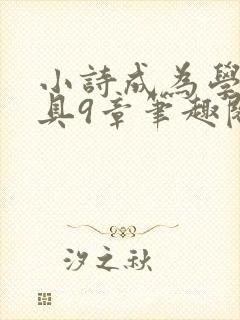 小詩成為學
具9章筆趣閣
汐之秋